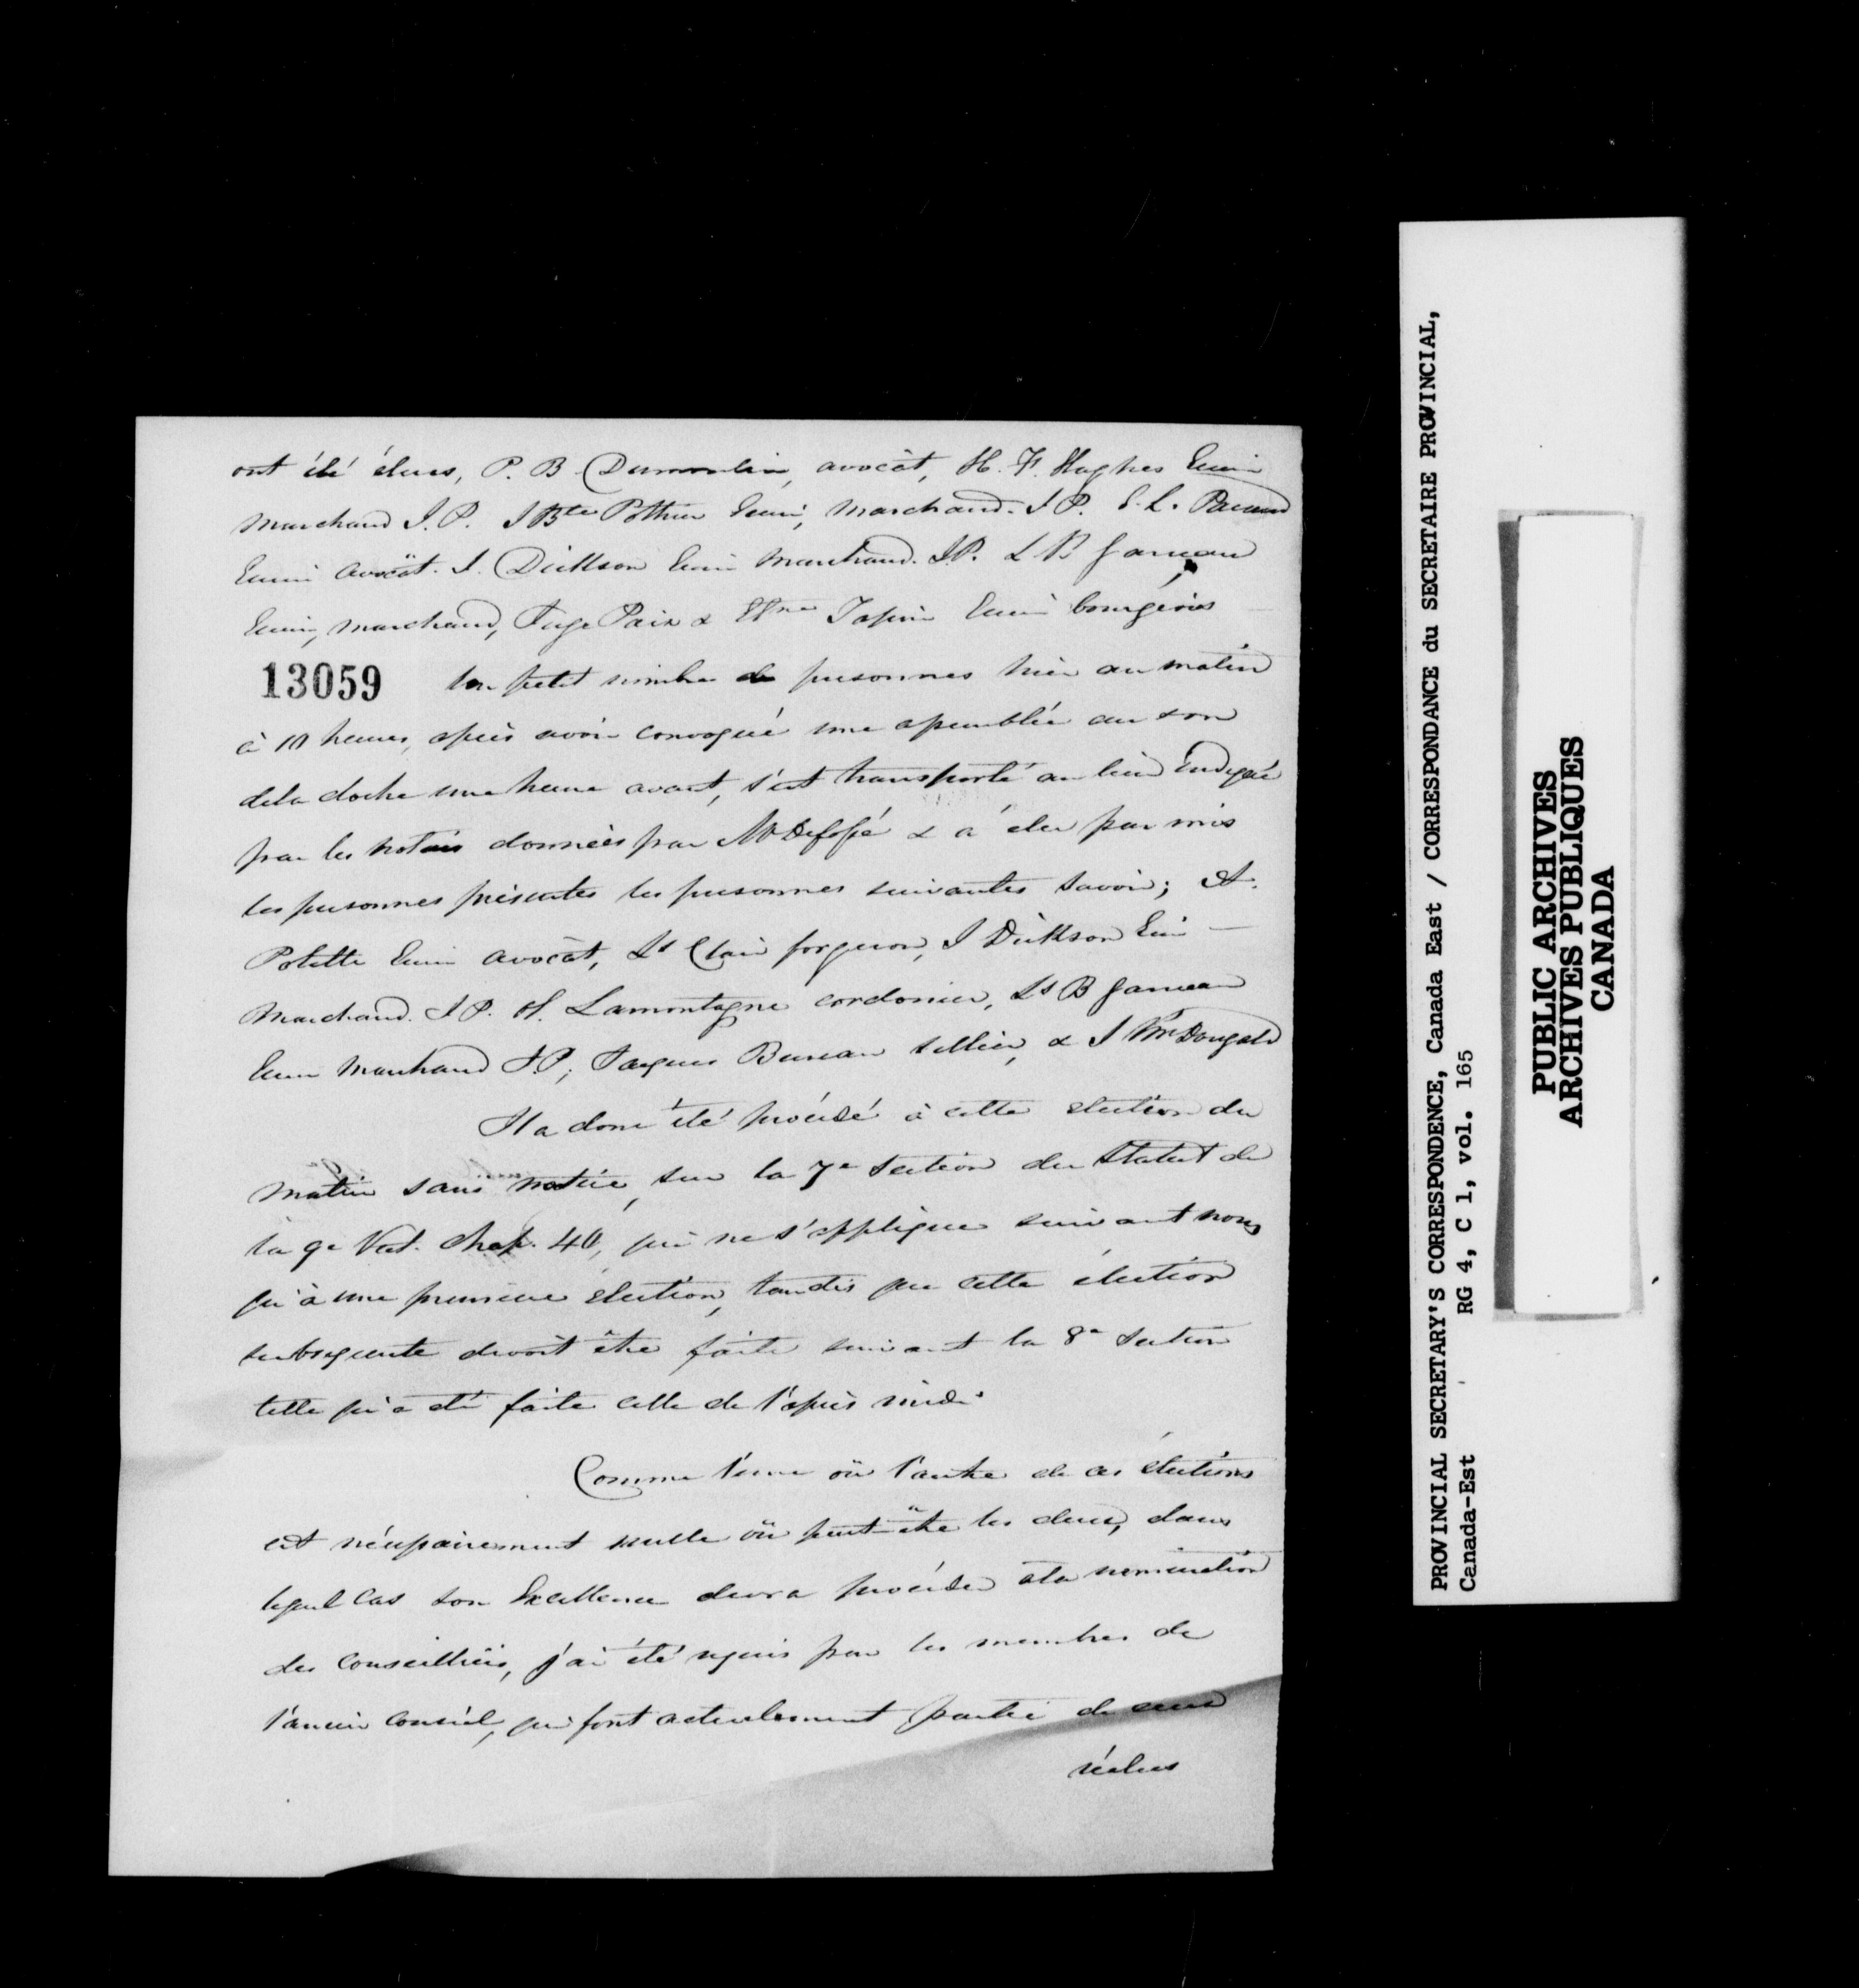 ont été élus, P. B. Dumoulin, avocât, H. F. Hughes Ecuier
Marchand J. P. J Bte Pothier Ecuier, Marchand. J P. E. L. Pacaud
Ecuier avocât. J. Dickson Ecuier Marchand. J.P. L B Garneau
Ecuier, marchand, Juge Paix & Etne Tapin Ecuier bourgeois
13059 Un petit nombre de personnes hier au matin
à 10 heures, après avoir convoqué une assemblée au son
de la cloche une heure avant, s'est transporté au lieu indiqué
par les notices données par Mr Defossé & a élu par mis
les personnes présentes les personnes suivantes savoir; A.
Polette Ecuier avocât, Ls Clair forgeron, J Dickson Ecuier
Marchand. J P. O. Lamontagne cordonier, Ls B Garneau
Ecuier Marchand J.P., Jacques Bureau sellier, & J McDougald
Il a donc été procédé à cette élection du
matin sans notice, sur la 7e Section du Statut de
la 9e Vict. Chap. 40, qui ne s'applique suivant nous
qu'à une première élection, tandis que cette élection
subséquente devoit être faite suivant la 8e Section
telle qu'a été faite celle de l'après midi.
Comme l'une où l'autre de ces élections
est nécessairement nulle où peut-être les deux, dans
lequel cas Son Excellence devra procéder à la nomination
des Conseillers, j'ai été requis par les membres de
l'ancien Conseil, qui font actuelement partie de ceux
réelus
PROVINCIAL SECRETARY'S CORRESPONDENCE, Canada East / CORRESPONDANCE du SECRETAIRE PROVINCIAL,
Canada-Est RG 4, C 1, vol. 165
PUBLIC ARCHIVES
ARCHIVES PUBLIQUES
CANADA